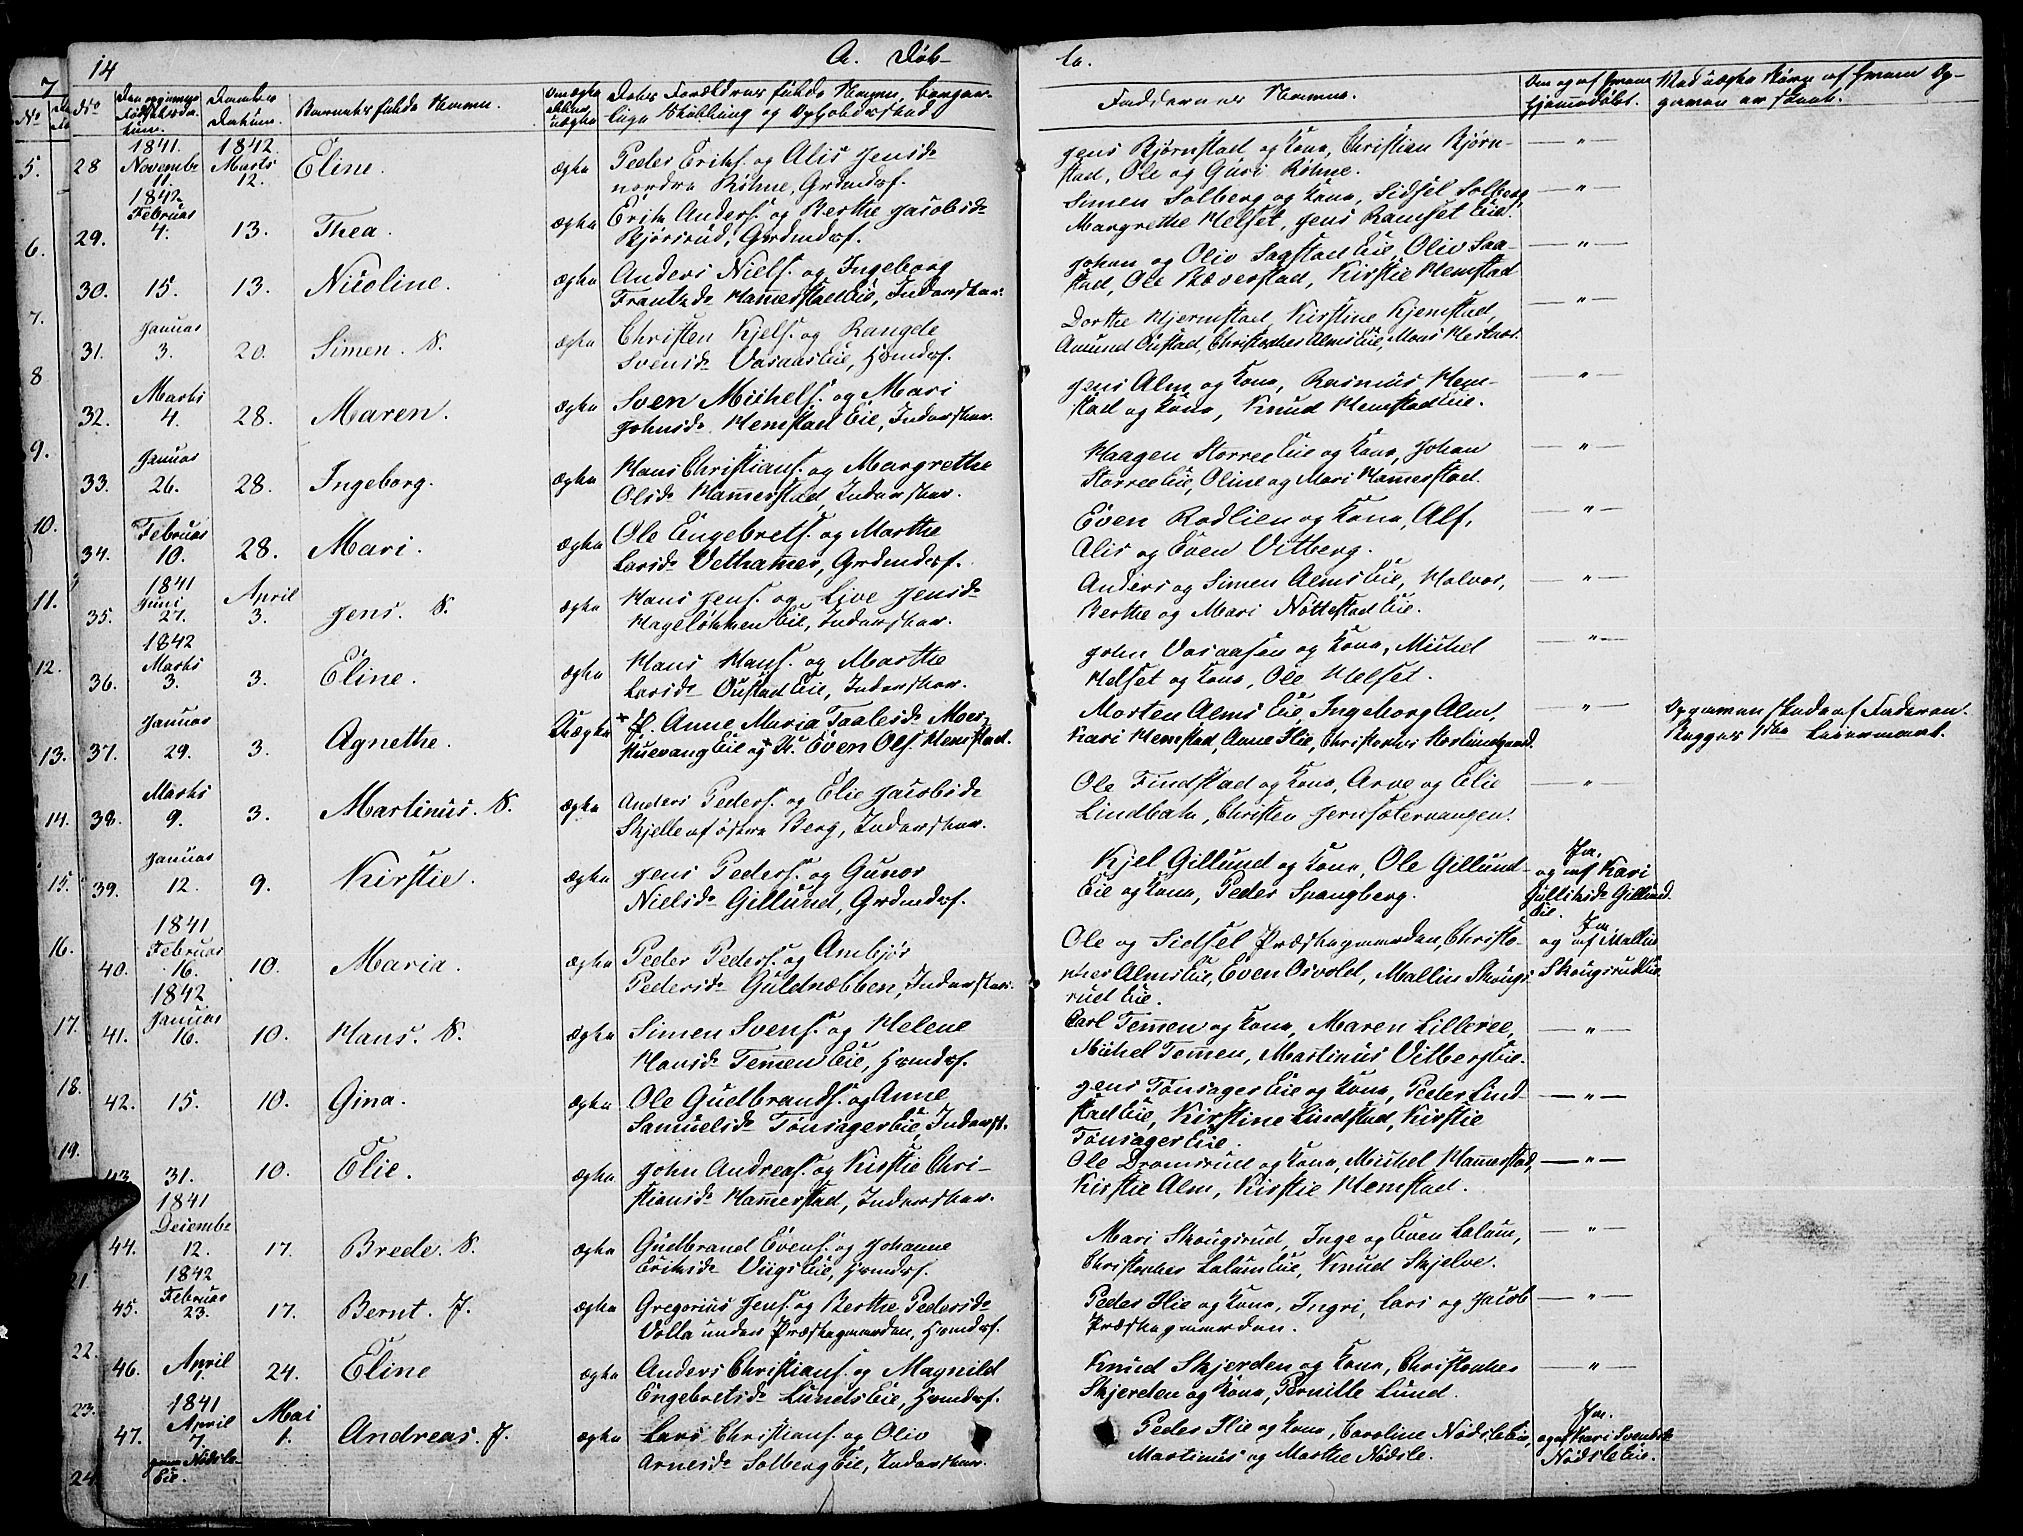 14
A. Døb-
te.
No
Barnets fulde Navn.
Faddernes Navne.
1841. 1842.
28 November 11. Marts 12. Eline. ægte Peder Eriks. og Alis Jensd.
nordre Røhne, Grdmdsf.
Jens Bjørnstad og Kone, Christian Bjørn-
stad, Ole og Guri Røhne. — " —
1842
29. Februar 4. 13. Thea. ægte Erik Anders. og Berthe Jacobsd.
Bjørsrud, Grdmdsf.
Simen Solberg og Kone, Sidsel Solberg,
Margrethe Helset, Jens Ramset Eie. — " —
30. 15. 13. Nicoline. ægte Anders Niels. og Ingeborg
Frantzd. Hammerstad Eie, Inderster.
Johan og Oliv Sagstad Eie, Oliv Saa-
stad, Ole Bæverstad, Kirstie Hemstad — " —
31. Januar 3. 20. Simen. V. ægte Christen Kjels. og Rangde
Svensd. Vasaas Eie, Hsmdsf.
Dorthe Hjermstad, Kirstine Kjemstad,
Amund Oustad, Christopher Alms Eie, — " —
32. Marts 4. 28. Maren. ægte Sven Michels. og Mari
Johnsd. Hemstad Eie, Inderster.
Jens Alm og Kone, Rasmus Hem-
stad og Kone, Knud Hemstad Eie. — " —
33. Januar 26. 28. Ingeborg. ægte Hans Christians. og Margrethe
Olsd. Hammerstad, Inderster.
Haagen Storree Eie og Kone, Johan
Storree Eie, Oline og Mari Hammerstad. — " —
34. Februar 10. 28. Mari. ægte Ole Engebrets. og Marthe
Larsd. Vethammer, Grdmdsf.
Even Rodlien og Kone, Alf,
Alis og Even Vitberg. — " —
1841
35. Juni 27. April 3. Jens. V. ægte Hans Jens. og Live Jensd.
Hageløkken Eie, Inderster.
Anders og Simen Alms Eie, Halvor,
Berthe og Mari Nøttestad Eie. — " —
1842
36. Marts 3. 3. Eline. ægte Hans Hans. og Marthe
Larsd. Oustad Eie, Inderster.
John Vasaasen og Kone, Michel
Helset og Kone, Ole Helset. — " —
37. Januar 29. 3. Agnethe. Uægte P. Anne Maria Taalesd. Moes-
Kuevang Eie og U. K. Even Ols. Hemstad.
Morten Alms Eie, Ingeborg Alm,
Kari Hemstad, Anne Ilie, — " — Opgaven skede af Faderen.
Begges 1ste Leiermaal.
38. Marts 9. 3. Martinus. V. ægte Anders Peders. og Elie Jacobsd.
Skjelle af østre Berg, Inderster.
Ole Findstad og Kone, Arve og Elie
Lindbak, Christen Jernsetervangen. — " —
39. Januar 12. 9. Kirstie. ægte Jens Peders. og Gunor
Nielsd. Gillund, Grdmdsf.
Kjel Gillund og Kone, Ole Gillund-
Eie og Kone, Peder Spangberg.
Ja.
og af Kari
Gulliksd. Gillund
Eie.
1841
40. Februar 16. 10. Maria. ægte Peder Peders. og Ambjør
Pedersd. Guldnæbben, Inderster.
Ole og Sidsel Præstegaarden, Christo-
pher Alms Eie, Even Osvold, Mallin Skougs-
rud Eie.
Ja
og af Mallin
Skougsrud Eie.
1842
41. Januar 16. 10. Hans. V. ægte Simen Svens. og Helene
Hansd. Temmen Eie, Hsmdsf.
Carl Temmen og Kone, Maren Lilleree,
Michel Temmen, Martinus Vitbergs Eie. — " —
42. 15. 10. Gina. ægte Ole Gudbrands. og Anne
Samuelsd. Tønsager Eie, Inderst.
Jens Tønsager Eie og Kone, Peder Lind-
stad Eie, Kirstine Lindstad, Kirstie
Tønsager Eie. — " —
43. 31. 10. Elie. ægte John Andreas. og Kirstie Chri-
stiansd. Hammerstad, Inderster.
Ole Dramsrud og Kone, Michel Hammerstad,
Kirstie Alm, Kirstie Hemstad. — " —
1841
44. December 12. 17. Brede. V. ægte Gudbrand Evens. og Johanne
Eriksd. Viigs Eie, Hsmdsf.
Mari Skougsrud, Inge og Even Lalum,
Christopher Lalum Eie, Knud Skjelve. — " —
1842
45. Februar 23. 17. Bernt. J. ægte Gregorius Jens. og Berthe Pedersd.
Volla under Præstegaarden, Hsmdsf.
Peder Ilie og Kone, Ingri, Lars og Jacob
Præstegaarden. — " —
46. April 1. 24. Eline ægte Anders Christians. og Magnild
Engebretsd. Lunds Eie, Hsmdsf.
Knud Skjerden og Kone, Christopher
Skjerden og Kone, Pernille Lund. — " —
1841
47. April 7. Mai 1. Andreas. J. ægte Lars Christians. og Oliv
Arnesd. Solberg Eie, Inderster.
Peder Ilie og Kone, Caroline Nødsle Eie,
Martinus og Marthe Nødsle.
Ja.
og af Kari Svensd.
Nødsle Eie.